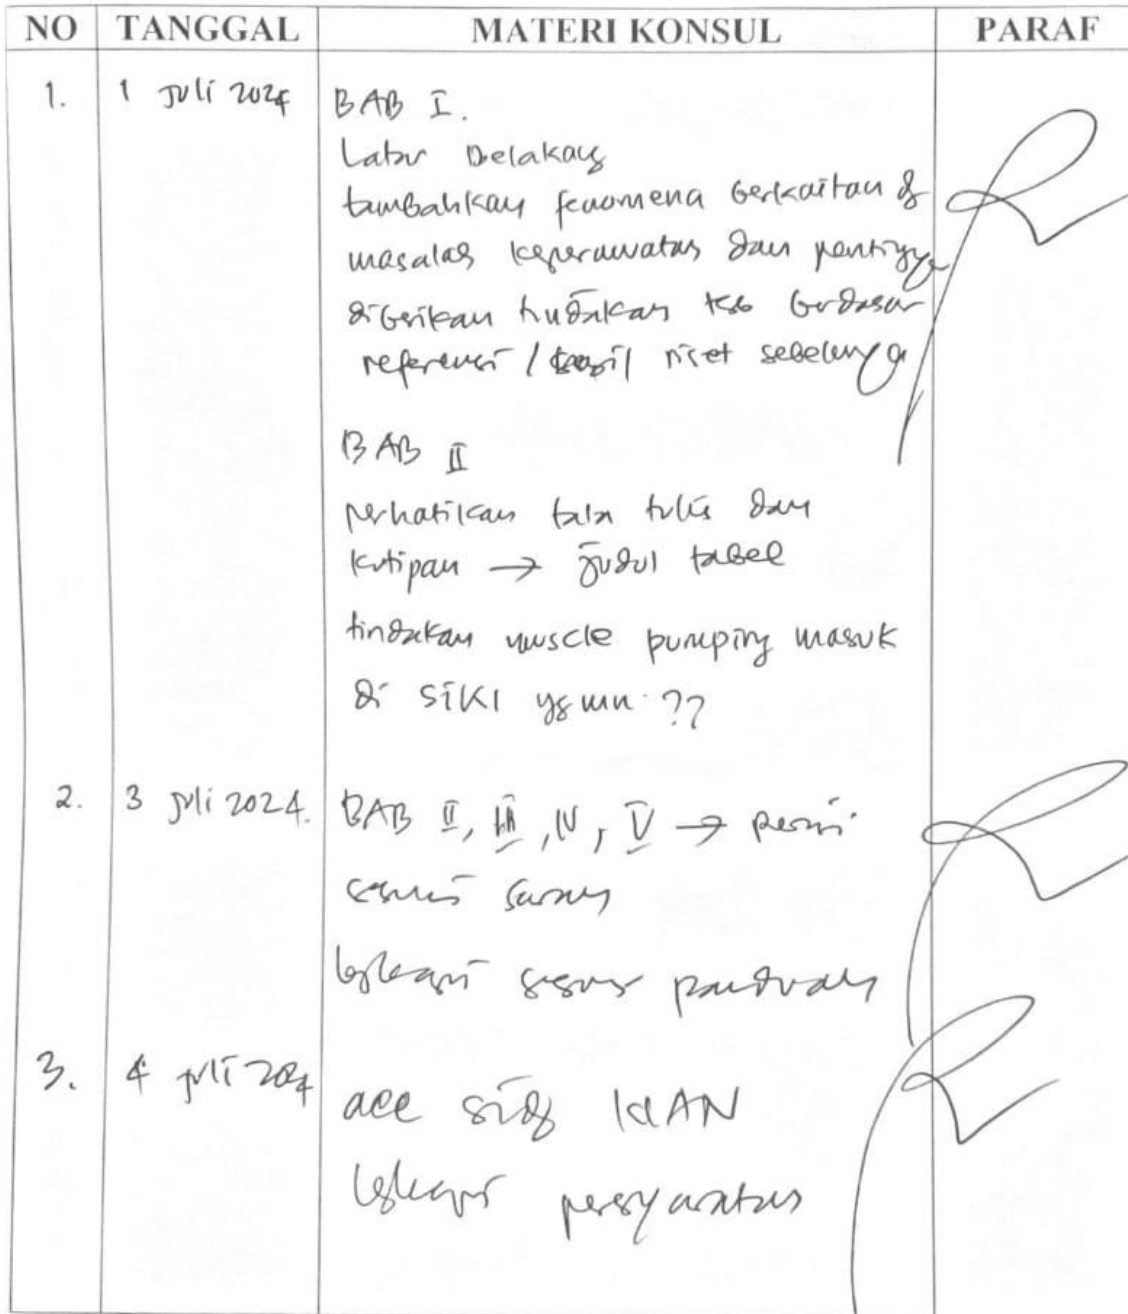 NO TANGGAL MATERI KONSUL PARAF
1. 1 Juli 2024 BAB I.
Latar Belakang
tambahkan fenomena berkaitan dg
masalah keperawatan dan pentingnya
diberikan tindakan tsb berdasar
referensi / hasil riset sebelumnya
BAB II
perhatikan tata tulis dan
kutipan → judul tabel
tindakan muscle pumping masuk
di SIKI yg mn ??
2. 3 Juli 2024. BAB II, III, IV, V → revisi
sesuai saran
lengkapi sesuai panduan
3. 4 Juli 2024 acc sidg KIAN
lengkapi persyaratan